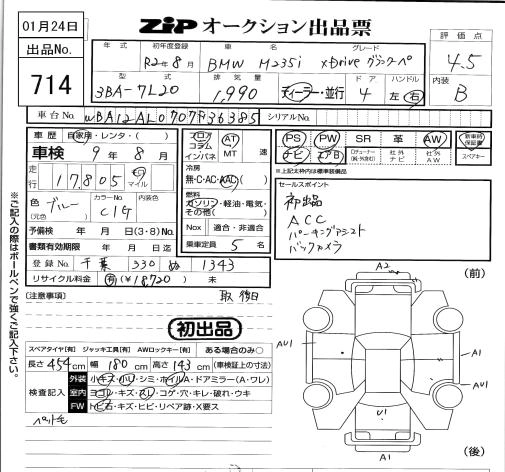 01月24日
ZiP オークション出品票
評価点
4.5
出品No.
714
年式 初年度登録 車名 グレード
R2年8月 BMW M235i xDrive グランクーペ
型式 排気量 ドア ハンドル
3BA-7L20 1,990 ディーラー・並行 4 左 右
内装
B
車台No. WBA12AL0707F36385 シリアルNo.
車歴 自家用・レンタ・( )
車検 9年8月
走行 17,805 Km マイル
色 ブルー カラーNo. C1G 内装色
(元色)
予備検 年 月 日(3・8)No.
書類有効期限 年 月 日迄
登録No. 千葉 330 ぬ 1343
リサイクル料金 有 (¥18,720) 未
フロア コラム インパネ
AT MT 速
冷房
無・C・AC・AAC
燃料
ガソリン・軽油・電気・その他( )
Nox 適合・非適合
乗車定員 5 名
PS PW SR 革 AW 新車時保証書
ナビ エアB 社外ナビ 社外AW スペアキー
※上記太枠内は標準装備品
セールスポイント
初出品
ACC
パーキングアシスト
バックカメラ
※ご記入の際はボールペンで強くご記入下さい。
[注意事項]
取後日
初出品
スペアタイヤ[有] ジャッキ工具[有] AWロックキー[有] ある場合のみ○
長さ 454 cm 幅 180 cm 高さ 143 cm (車検証上の寸法)
検査記入
外装 小キズ・小凹・シミ・ホイルA・ドアミラー(A・ワレ)
室内 ヨゴレ・キズ・スレ・コゲ・穴・キレ・破れ・ウキ
FW トビ石・キズ・ヒビ・リペア跡・X要ス
ペット毛
(前)
A2
AU1
A1
AU1
A1
U1
A1
(後)